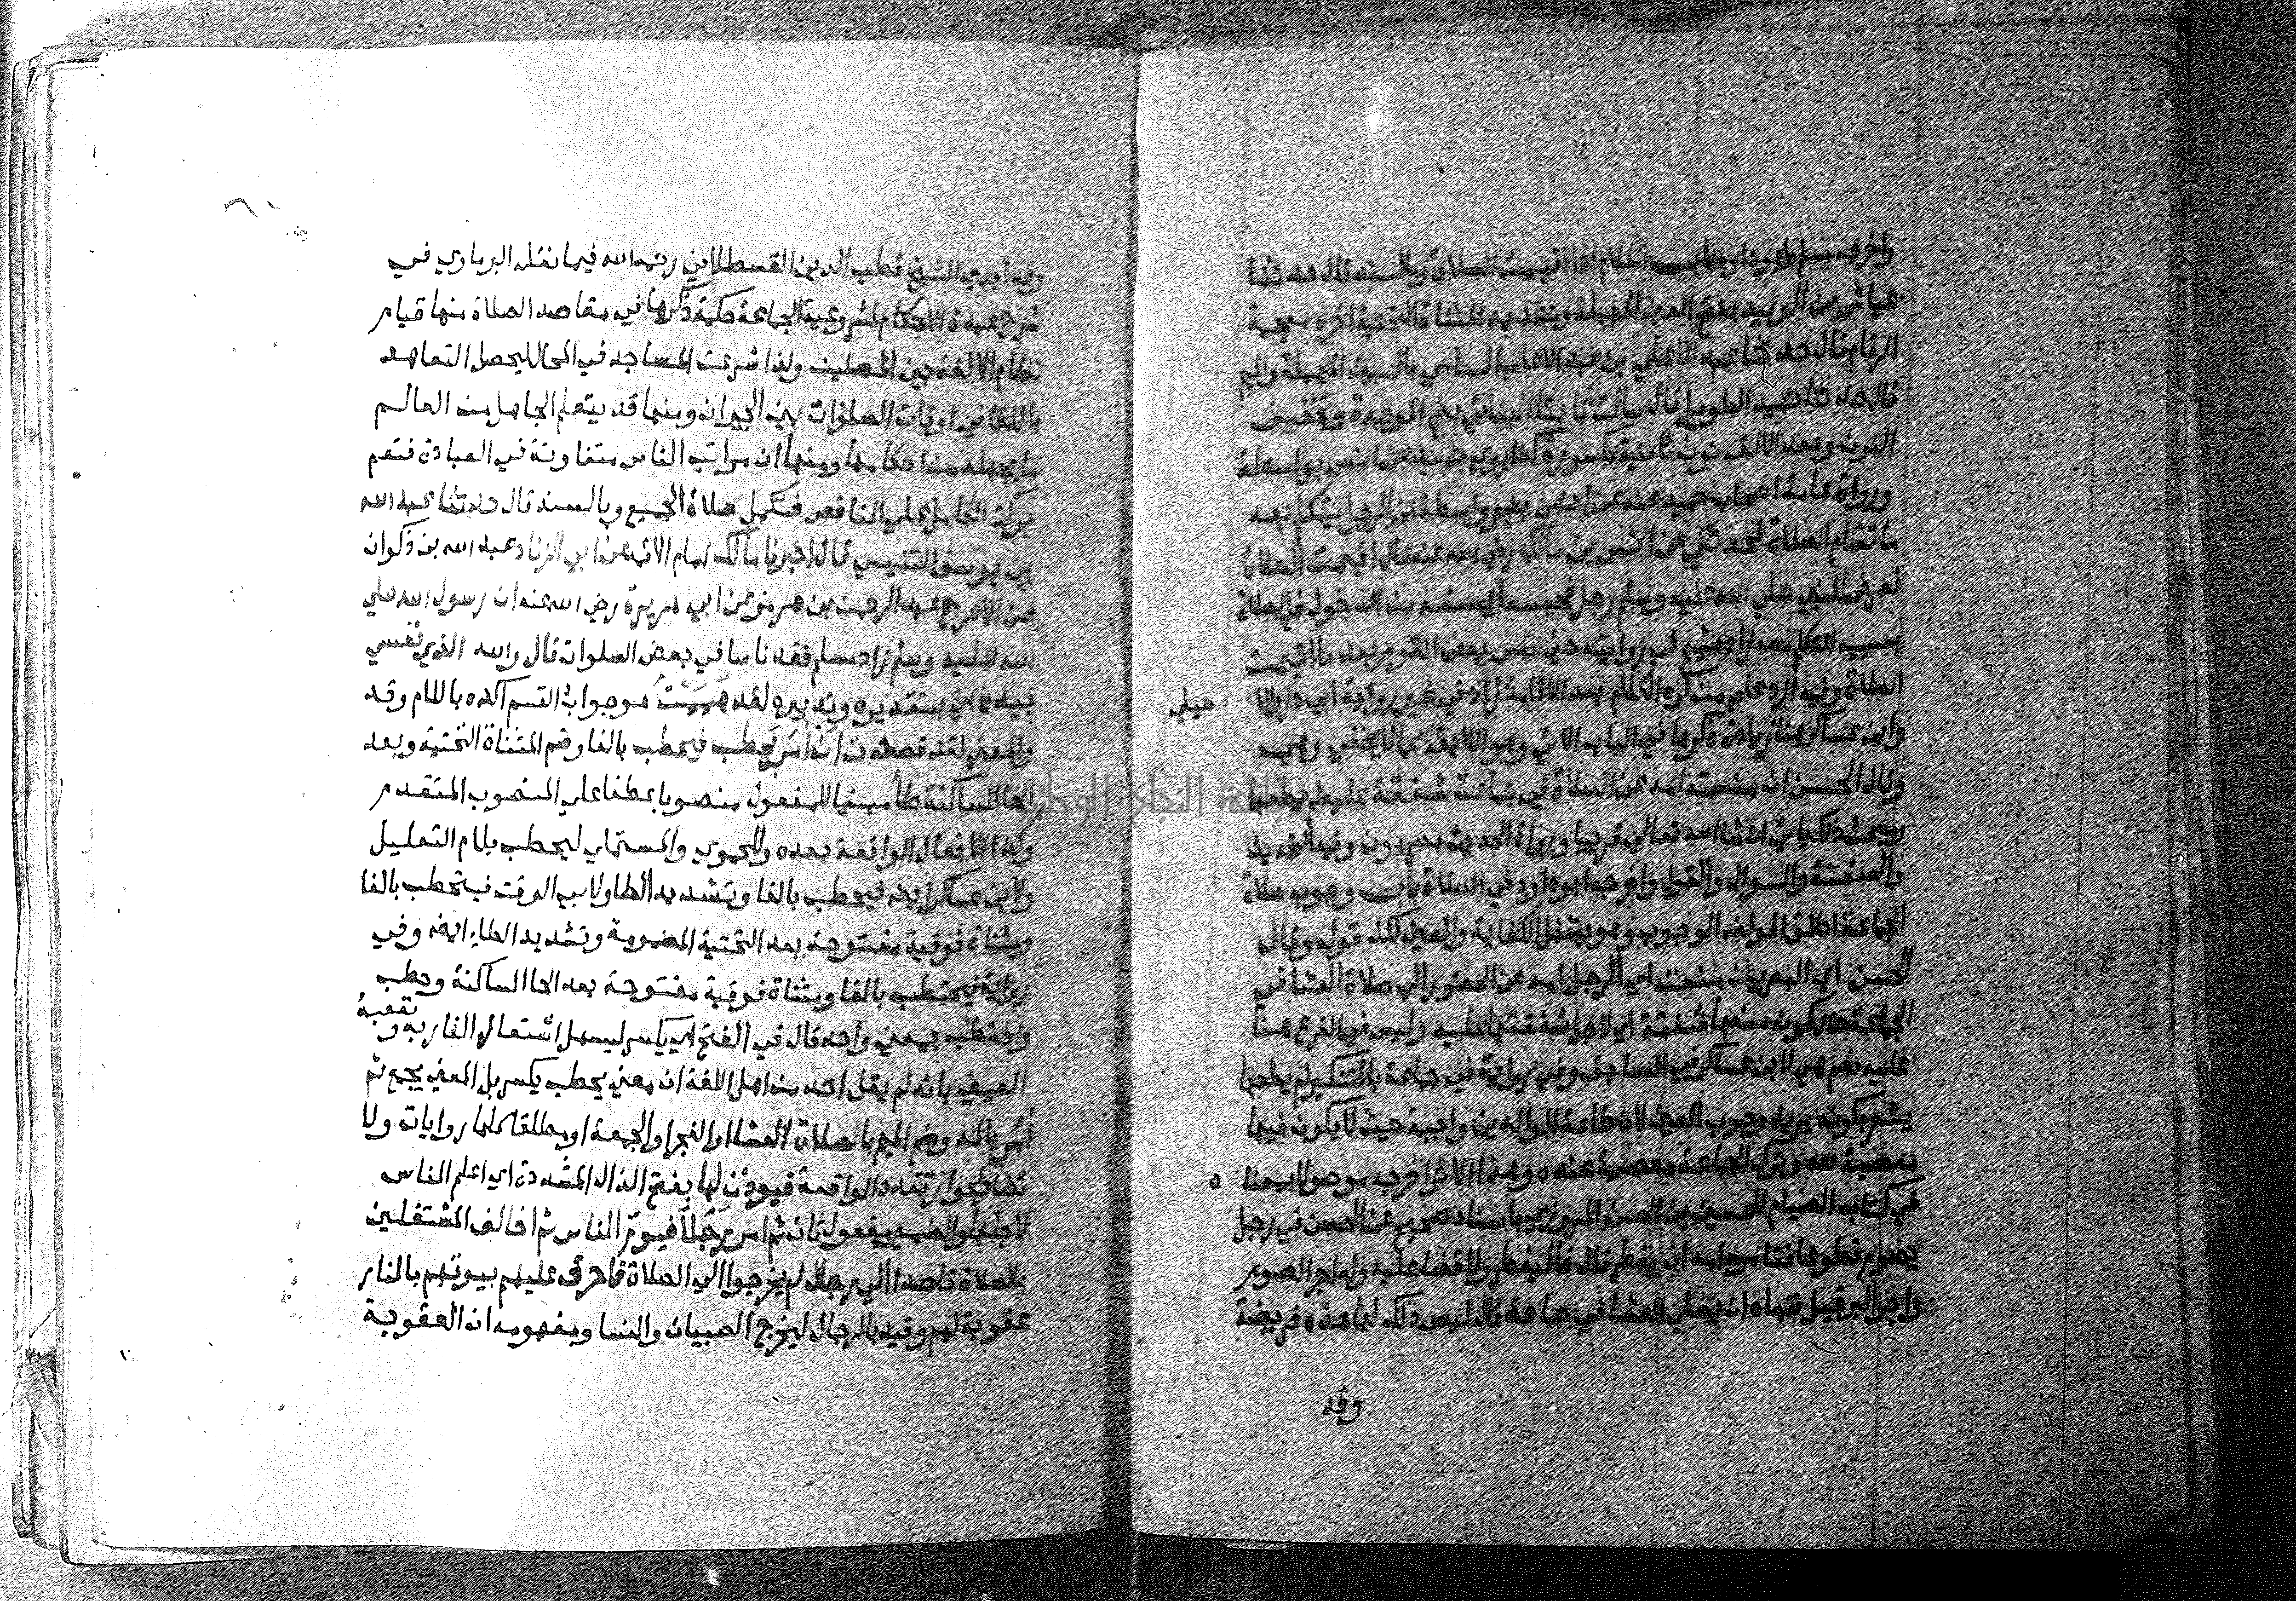 واخرجه مسلم وابوداود باب الكلام اذا اقيمت الصلاة وبالسند قال حدثنا
عياش بن الوليد بفتح العين المهملة وتشديد المثناة التحتية اخره معجمة
الرقام قال حدثنا عبد الاعلي بن عبد الاعلي السامي بالسين المهملة والميم
قال حدثنا حميد الطويل قال سالت ثابتا البناني بضم الموحدة وتخفيف
النون وبعد الالف نون ثانية مكسورة كذا روي حميد عن انس بواسطة
ورواة عامة اصحاب حميد عنه عن انس بغير واسطة عن الرجل يتكلم بعد
ما تقام الصلاة فحدثني عن انس بن مالك رضي الله عنه قال اقيمت الصلاة
فعرض للنبي صلي الله عليه وسلم رجل فحبسه اي منعه من الدخول في الصلاة
بسبب التكلم معه زاد هشيم في روايته حتي نعس بعض القوم بعد ما اقيمت
الصلاة وفيه الرد علي من كره الكلام بعد الاقامة زاد في غير رواية ابي ذر والا
صيلي
وابن عساكر هنا زيادة ذكرها في الباب الاتي وهو اللايق كما لا يخفي وهي
وقال الحسن ان منعته امه عن الصلاة في جماعة شفقة عليه لم يطعها
ومبحث ذلك ياتي ان شا الله تعالي قريبا ورواة الحديث بصريون وفيه التحديث
والعنعنة والسوال والقول واخرجه ابوداود في الصلاة باب وجوب صلاة
الجماعة اطلق المولف الوجوب وهو يشمل الكفاية والعين لكن قوله وقال
الحسن اي البصري ان منعته اي الرجل امه عن الحضور الي صلاة العشا في
الجماعة حال كون منعها شفقة اي لاجل شفقتها عليه وليس في الفرع هنا
عليه نعم هي لابن عساكر في السابق وفي رواية في جماعة بالتنكير لم يطعها
يشعر بكونه يريد وجوب العين لان طاعة الوالدين واجبة حيث لا يكون فيها
معصية لله وترك الجماعة معصية عنده وهذا الاثر اخرجه موصولا بمعناه
في كتاب الصيام للحسين بن الحسن المروزي باسناد صحيح عن الحسن في رجل
يصوم تطوعا فتامره امه ان يفطر قال فاليفطر ولا قضا عليه وله اجر الصوم
واجر البر قيل فتنهاه ان يصلي العشا في جماعة قال ليس ذلك لها هذه فريضة
وقد
وقد ابدي الشيخ قطب الدين القسطلاني رحمه الله فيما نقله البرماوي في
شرح عمدة الاحكام لمشروعية الجماعة حكمة ذكرها في مقاصد الصلاة منها قيام
نظام الالفة بين المصلين ولذا شرعت المساجد في المحال ليحصل التعاهد
باللقا في اوقات الصلوات بين الجيران ومنها قد يتعلم الجاهل من العالم
ما يجهله من احكامها ومنها ان مراتب الناس متفاوتة في العبادة فتعم
بركة الكامل علي الناقص فتكمل صلاة الجميع وبالسند قال حدثنا عبد الله
بن يوسف التنيسي قال اخبرنا مالك امام الائمة عن ابي الزناد عبد الله بن ذكوان
عن الاعرج عبد الرحمن بن هرمز عن ابي هريرة رضي الله عنه ان رسول الله صلي
الله عليه وسلم زاد مسلم فقد ناسا في بعض الصلوات قال والله الذي نفسي
بيده اي بتقديره وتدبيره لقد هممت هو جواب القسم اكده باللام وقد
والمعني لقد قصدت ان امر بحطب فيحطب بالفا وضم المثناة التحتية وبعد
الحا الساكنة طا مبنيا للمفعول منصوبا عطفا علي المنصوب المتقدم
وكذا الافعال الواقعة بعده وللحموي والمستملي ليحطب بلام التعليل
ولابن عساكر ايضا فيحطب بالفا وتشديد الطا ولابي الوقت فيتحطب بالفا
ومثناة فوقية مفتوحة بعد التحتية المضمومة وتشديد الطاء ايضا وفي
رواية فيحتطب بالفا ومثناة فوقية مفتوحة بعد الحا الساكنة وحطب
واحتطب بمعني واحد قال في الفتح اي يكسر ليسهل اشتعال النار به وتعقبه
العيني بانه لم يقل احد من اهل اللغة ان معني يحطب يكسر بل المعني يجمع ثم
امر بالمد وضم الميم بالصلاة العشا او الفجر او الجمعة او مطلقا كلها روايات ولا
تضاد لجواز تعدد الواقعة فيوذن لها بفتح الذال المشددة اي اعلم الناس
لاجلها والضمير مفعول ثان ثم امر رجلا فيوم الناس ثم اخالف المشتغلين
بالصلاة قاصدا الي رجال لم يخرجوا الي الصلاة فاحرق عليهم بيوتهم بالنار
عقوبة لهم وقيد بالرجال ليخرج الصبيان والنسا ومفهومه ان العقوبة